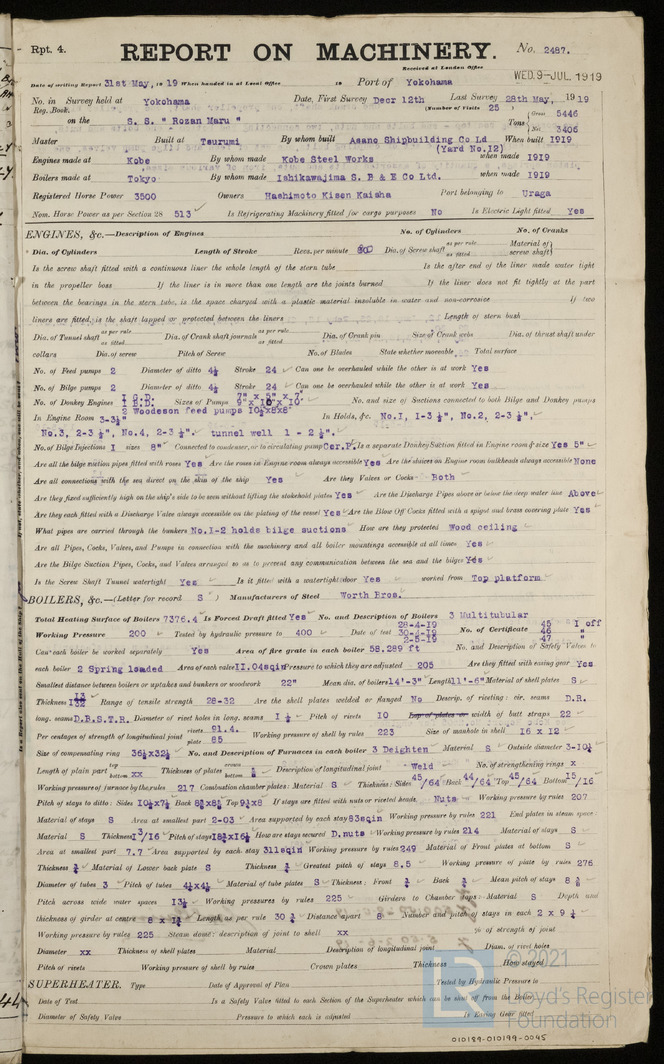 Rpt. 4. REPORT ON MACHINERY. No. 2487.
Received at London Office WED. 9-JUL. 1919
Date of writing Report 31st May, is 19 When handed in at Local Office 19 Port of Yokohama
No. in Survey held at Yokohama Date, First Survey Decr 12th Last Survey 28th May, 1919
Reg. Book. (Number of Visits 25
on the S. S. " Rozan Maru " Tons { Gross 5446
Net 3405
Master Built at Tsurumi By whom built Asano Shipbuilding Co Ld (Yard No.12) When built 1919
Engines made at Kobe By whom made Kobe Steel Works when made 1919
Boilers made at Tokyo By whom made Ishikawajima S. B & E Co Ltd. when made 1919
Registered Horse Power 3500 Owners Hashimoto Kisen Kaisha Port belonging to Uraga
Nom. Horse Power as per Section 28 513 Is Refrigerating Machinery fitted for cargo purposes No Is Electric Light fitted Yes
ENGINES, &c.—Description of Engines No. of Cylinders No. of Cranks
Dia. of Cylinders Length of Stroke Revs. per minute 80 Dia. of Screw shaft as per rule as fitted Material of screw shaft}
Is the screw shaft fitted with a continuous liner the whole length of the stern tube Is the after end of the liner made water tight
in the propeller boss If the liner is in more than one length are the joints burned If the liner does not fit tightly at the part
between the bearings in the stern tube, is the space charged with a plastic material insoluble in water and non-corrosive If two
liners are fitted, is the shaft lapped or protected between the liners Length of stern bush
Dia. of Tunnel shaft as per rule as fitted Dia. of Crank shaft journals as per rule as fitted Dia. of Crank pin Size of Crank webs Dia. of thrust shaft under
collars Dia. of screw Pitch of Screw No. of Blades State whether moveable Total surface
No. of Feed pumps 2 Diameter of ditto 4½ Stroke 24 Can one be overhauled while the other is at work Yes
No. of Bilge pumps 2 Diameter of ditto 4½ Stroke 24 Can one be overhauled while the other is at work Yes
No. of Donkey Engines Sizes of Pumps No. and size of Suctions connected to both Bilge and Donkey pumps
In Engine Room 3-3½" 2 Woodeson feed pumps In Holds, &c. No.1, 1-3½", No.2, 2-3½".
No.3, 2-3½", No.4, 2-3½". tunnel well 1 - 2½".
No. of Bilge Injections 1 sizes 8" Connected to condenser, or to circulating pump Cer.P. Is a separate Donkey Suction fitted in Engine room & size Yes 5"
Are all the bilge suction pipes fitted with roses Yes Are the roses in Engine room always accessible Yes Are the sluices on Engine room bulkheads always accessible None
Are all connections with the sea direct on the skin of the ship Yes Are they Valves or Cocks Both
Are they fixed sufficiently high on the ship's side to be seen without lifting the stokehold plates Yes Are the Discharge Pipes above or below the deep water line Above
Are they each fitted with a Discharge Valve always accessible on the plating of the vessel Yes Are the Blow Off Cocks fitted with a spigot and brass covering plate Yes
What pipes are carried through the bunkers No.1-2 holds bilge suctions How are they protected Wood ceiling
Are all Pipes, Cocks, Valves, and Pumps in connection with the machinery and all boiler mountings accessible at all times Yes
Are the Bilge Suction Pipes, Cocks, and Valves arranged so as to prevent any communication between the sea and the bilges Yes
Is the Screw Shaft Tunnel watertight Yes Is it fitted with a watertight door Yes worked from Top platform
BOILERS, &c.—(Letter for record S ) Manufacturers of Steel Worth Bros.
Total Heating Surface of Boilers 7376.4 Is Forced Draft fitted Yes No. and Description of Boilers 3 Multitubular
Working Pressure 200 Tested by hydraulic pressure to 400 Date of test 28-4-19 30-4-19 2-5-19 No. of Certificate 45 46 47 1 off
Can each boiler be worked separately Yes Area of fire grate in each boiler 58.289 ft No. and Description of Safety Valves to
each boiler 2 Spring loaded Area of each valve 11.04sqin Pressure to which they are adjusted 205 Are they fitted with easing gear Yes
Smallest distance between boilers or uptakes and bunkers or woodwork 22" Mean dia. of boilers 14'-3" Length 11'-6" Material of shell plates S
Thickness Range of tensile strength 28-32 Are the shell plates welded or flanged No Descrip. of riveting: cir. seams D.R.
long. seams D.B.S.T.R. Diameter of rivet holes in long. seams Pitch of rivets 10 Lap of plates or width of butt straps 22
Per centages of strength of longitudinal joint rivets 91.4. plate 85 Working pressure of shell by rules 223 Size of manhole in shell 16 x 12
Size of compensating ring No. and Description of Furnaces in each boiler 3 Deighten Material S Outside diameter
Length of plain part top bottom xx Thickness of plates crown bottom Description of longitudinal joint Weld No. of strengthening rings x
Working pressure of furnace by the rules 217 Combustion chamber plates: Material S Thickness: Sides 45/64 Back 44/64 Top 45/64 Bottom 15/16
Pitch of stays to ditto: Sides Back Top If stays are fitted with nuts or riveted heads Nuts Working pressure by rules 207
Material of stays S Area at smallest part 2-03 Area supported by each stay 83sqin Working pressure by rules 221 End plates in steam space:
Material S Thickness Pitch of stays How are stays secured D.nuts Working pressure by rules 214 Material of stays S
Area at smallest part 7.7 Area supported by each stay 311sqin Working pressure by rules 249 Material of Front plates at bottom S
Thickness Material of Lower back plate S Thickness Greatest pitch of stays 8.5 Working pressure of plate by rules 276
Diameter of tubes 3 Pitch of tubes Material of tube plates S Thickness: Front Back Mean pitch of stays
Pitch across wide water spaces Working pressures by rules 225 Girders to Chamber tops: Material S Depth and
thickness of girder at centre Length as per rule Distance apart 8 Number and pitch of stays in each
Working pressure by rules 225 Steam dome: description of joint to shell xx % of strength of joint
Diameter xx Thickness of shell plates Material Description of longitudinal joint Diam. of rivet holes
Pitch of rivets Working pressure of shell by rules Crown plates Thickness How stayed
SUPERHEATER. Type Date of Approval of Plan Tested by Hydraulic Pressure to
Date of Test Is a Safety Valve fitted to each Section of the Superheater which can be shut off from the Boiler
Diameter of Safety Valve Pressure to which each is adjusted Is Easing Gear fitted
© 2021
LR
Lloyd's Register
Foundation
010189-010199-0045